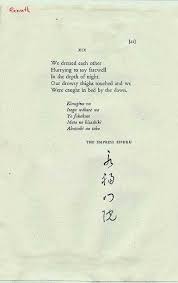 XIX
We dressed each other
Hurrying to say farewell
In the depth of night.
Our drowsy thighs touched and we
Were caught in bed by the dawn.
Kinuginu wo
Isogu wakare wa
Yo fukakute
Mata ne hisashiki
Akatsuki no toko
THE EMPRESS EIFUKU
永福門院